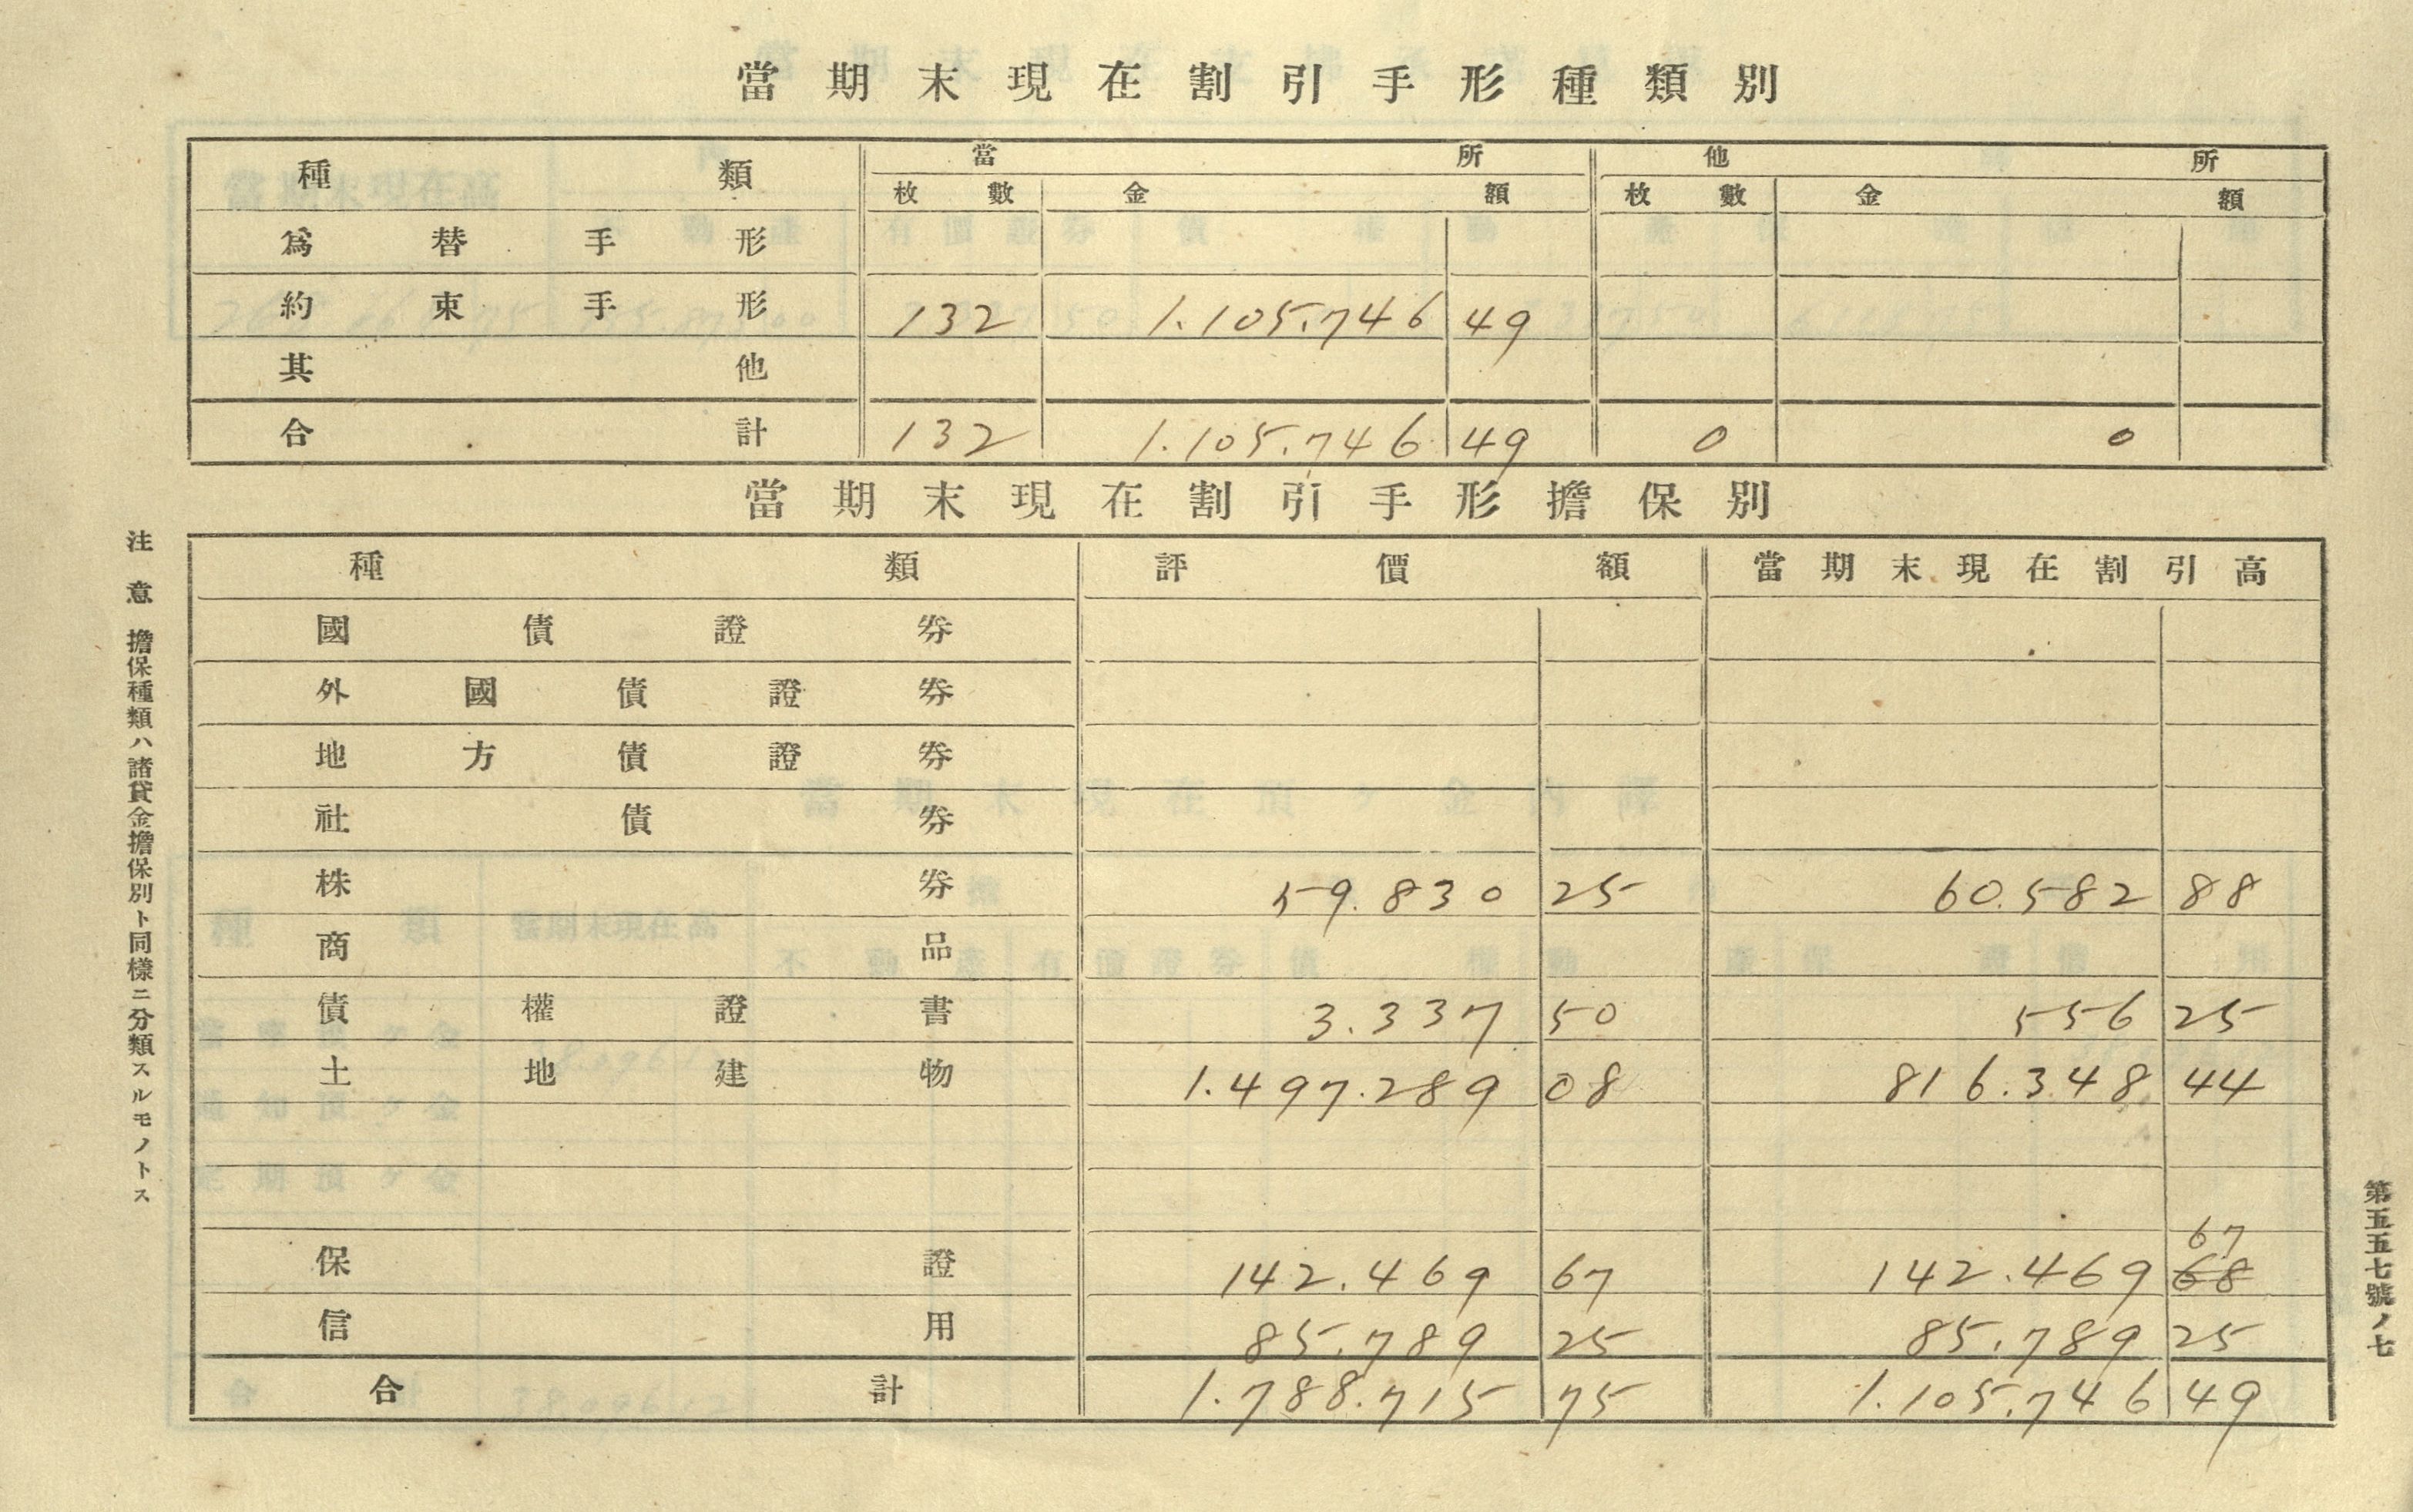 當期末現在割引手形種類別
種類 當所 他所
枚數 金額 枚數 金額
爲替手形
約束手形 132 1.105.746 49
其他
合計 132 1.105.746 49 0 0
當期末現在割引手形擔保別
種類 評價額 當期末現在割引高
國債證券
外國債證券
地方債證券
社債券
株券 59.830 25 60.582 88
商品
債權證書 3.337 50 556 25
土地建物 1.497.289 08 816.348 44
67
保證 142.469 67 142.469 68
信用 85.789 25 85.789 25
合計 1.788.715 75 1.105.746 49
注意 擔保種類ハ諸貸金擔保別ト同樣ニ分類スルモノトス
第五五七號ノ七